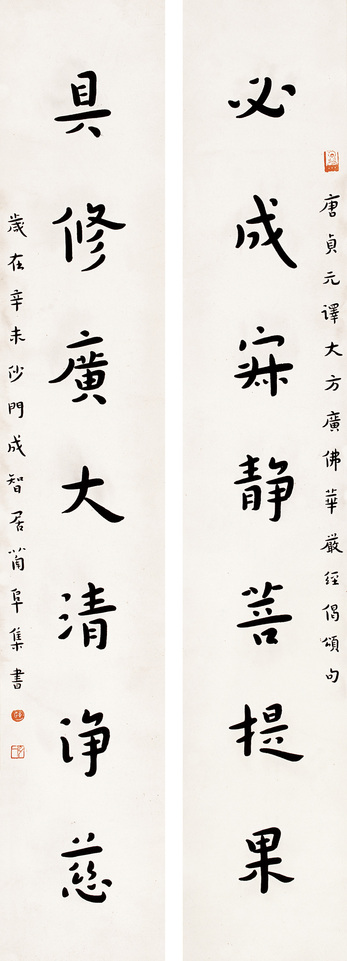 唐貞元譯大方廣佛華嚴經偈頌句
必成寂静菩提果
具修廣大清净慈
歲在辛未沙門成智居阜集書